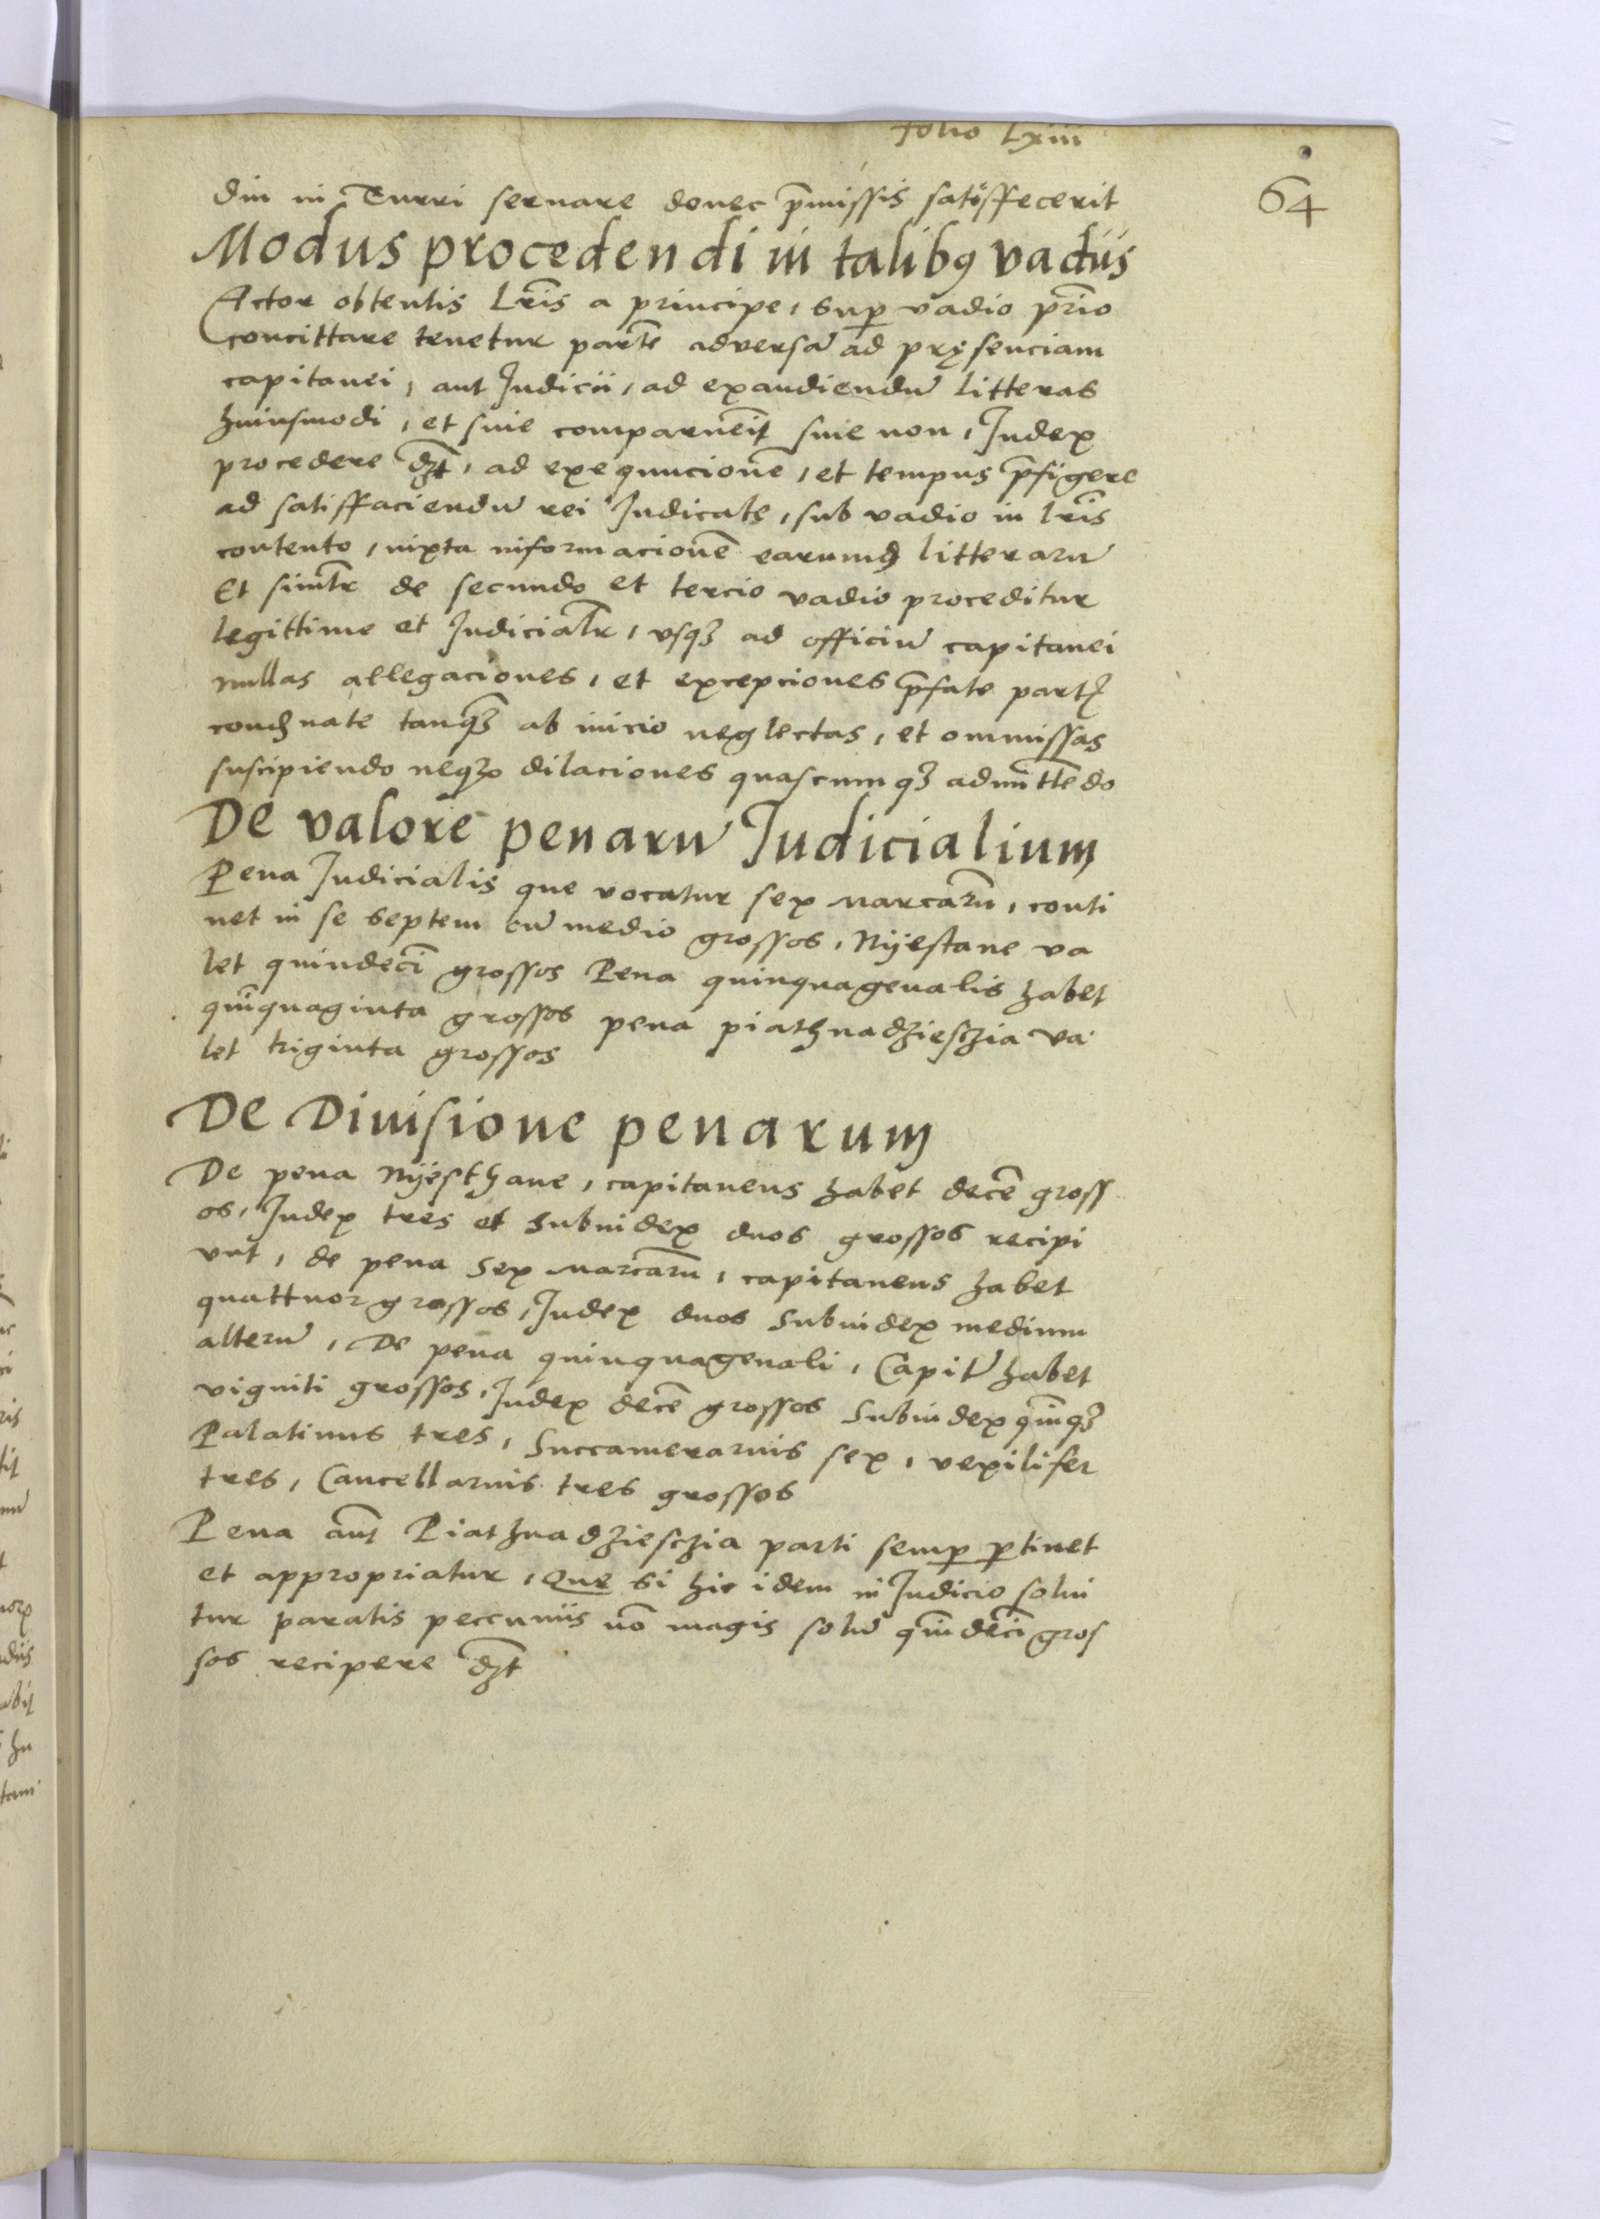 folio Lxiii
64
diu in Turri seruare donec p̄missis satisffecerit
Modus procedendi in talibꝫ vadiis
Actor obtentis Lr̄is a principe, suꝑ vadio pr̄io
concittare tenetur partē adversā ad pręsenciam
capitanei, aut Judicii, ad exaudiendū litteras
huiusmodi, et siue comparueīt siue non, Judex
procedere dꝫt, ad exequucionē, et tempus p̄figere
ad satisffaciendū rei Judicatę, sub vadio in lr̄is
contento, iuxta informacionē earumdꝫ litterarū
Et simlr̄ de secundo et tercio vadio proceditur
legittime et Judicialr̄, vsqꝫ ad officiū capitanei
nullas allegaciones, et excepciones p̄fate partꝭ
condꝫnate tanqꝫ ab inicio neglectas, et ommissas
suscipiendo neqꝫ dilaciones quascumqꝫ admittēdo
De valore penarū Judicialium
Pena Judicialis que vocatur sex marcarū, conti
net in se septem cū medio grossos, Nijestane va
let quindeci̅ grossos Pena quinquagenalis habet
qui̅quaginta grossos pena piathnadziesczia va
let triginta grossos
De Diuisione penarum
De pena Nijesthane, capitaneus habet decē gross
os, Judex tres et Subiudex duos grossos recipi
unt, de pena sex marcarū, capitaneus habet
quattuor grossos, Judex duos Subiudex medium
alterū, De pena quinquagenali, Capit̄ habet
viginti grossos, Judex decē grossos Subiudex qui̅qꝫ
Palatinus tres, Succamerarius sex, vexilifer
tres, Cancellarius tres grossos
Pena aut̄ Piathnadziesczia parti semꝑ ꝑtinet
et appropriatur, Que si hic idem in Judicio solui
tur paratis peccuniis nō magis solū qui̅deci̅ gros
sos recipere dꝫt